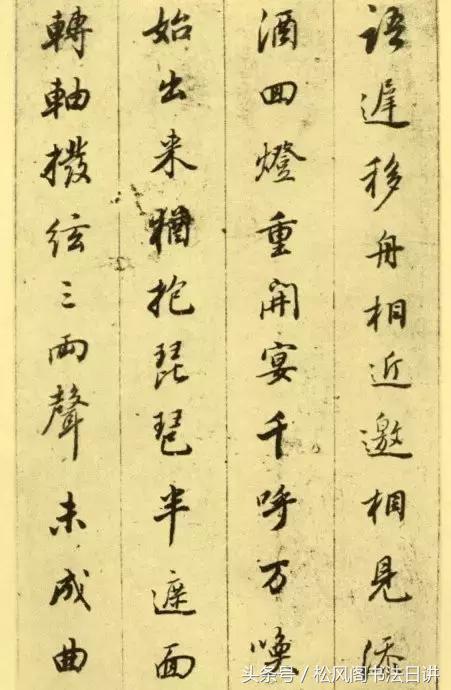 語遲移舟相近邀相見添
酒回燈重開宴千呼万喚
始出来猶抱琵琶半遮面
轉軸撥弦三兩聲未成曲
头条号／松风阁书法日讲